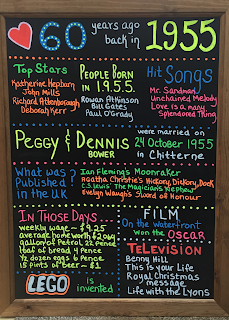 60 years ago back in 1955
Top Stars
Katherine Hepburn
John Mills
Richard Attenborough
Deborah Kerr
PEOPLE BORN
IN 1.9.5.5.
Rowan Atkinson
Bill Gates
Paul O'Grady
Hit Songs
Mr. Sandman
Unchained Melody
Love is a many
Splendored Thing
PEGGY & DENNIS
BOWER
were married on
24 October 1955
in Chitterne
What was
Published
in the UK
Ian Flemings Moonraker
Agatha Christie's Hickory, Dickory, Dock
C.S. Lewis' The Magicians Nephew
Evelyn Waugh's Sword of Honour
IN THOSE DAYS...
weekly wage - £9.25
average home worth £2,064
gallon of Petrol 22 pence
loaf of bread 4 Pence
1/2 dozen eggs 6 pence
15 pints of Beer - £1
LEGO is
invented
FILM
On the waterfront
Won the OSCAR
TELEVISION
Benny Hill
This is your Life
Royal Christmas
message
Life with the Lyons